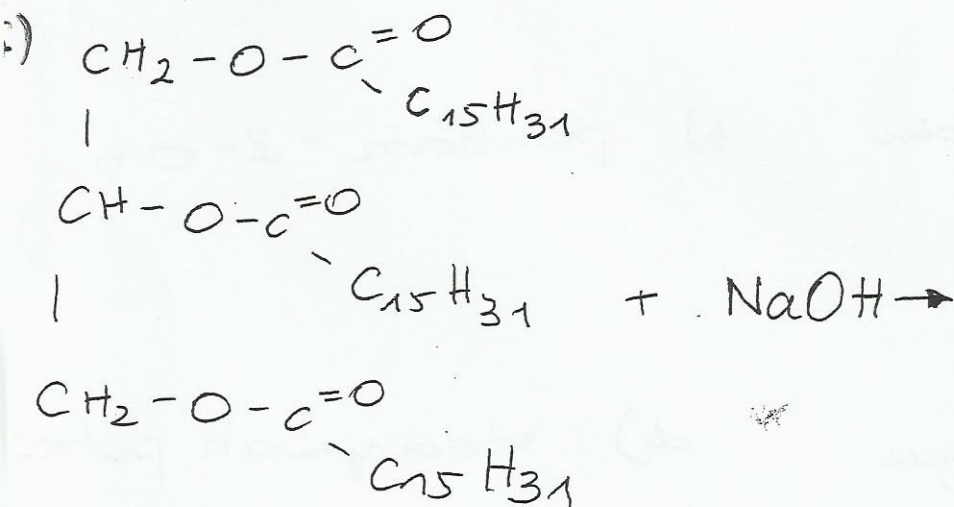 :)
CH2 - O - C =O
\ C15H31
|
CH - O - C =O
\ C15H31 + NaOH →
|
CH2 - O - C =O
\ C15H31